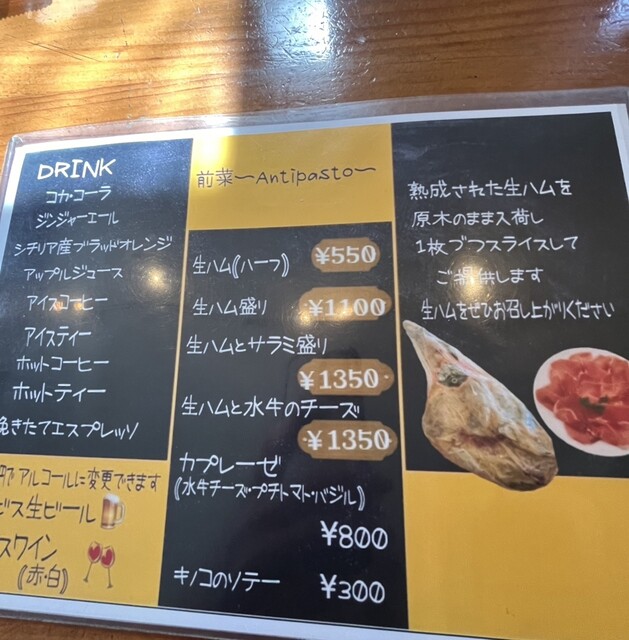 DRINK
コカ・コーラ
ジンジャーエール
シチリア産ブラッドオレンジ
アップルジュース
アイスコーヒー
アイスティー
ホットコーヒー
ホットティー
挽きたてエスプレッソ
円で アルコールに変更できます
ビス生ビール
スワイン
(赤・白)
前菜〜Antipasto〜
生ハム(ハーフ) ¥550
生ハム盛り ¥1100
生ハムとサラミ盛り
¥1350
生ハムと水牛のチーズ
¥1350
カプレーゼ
(水牛チーズ・プチトマト・バジル)
¥800
キノコのソテー ¥300
熟成された生ハムを
原木のまま入荷し
1枚づつスライスして
ご提供します
生ハムをぜひお召し上がりください